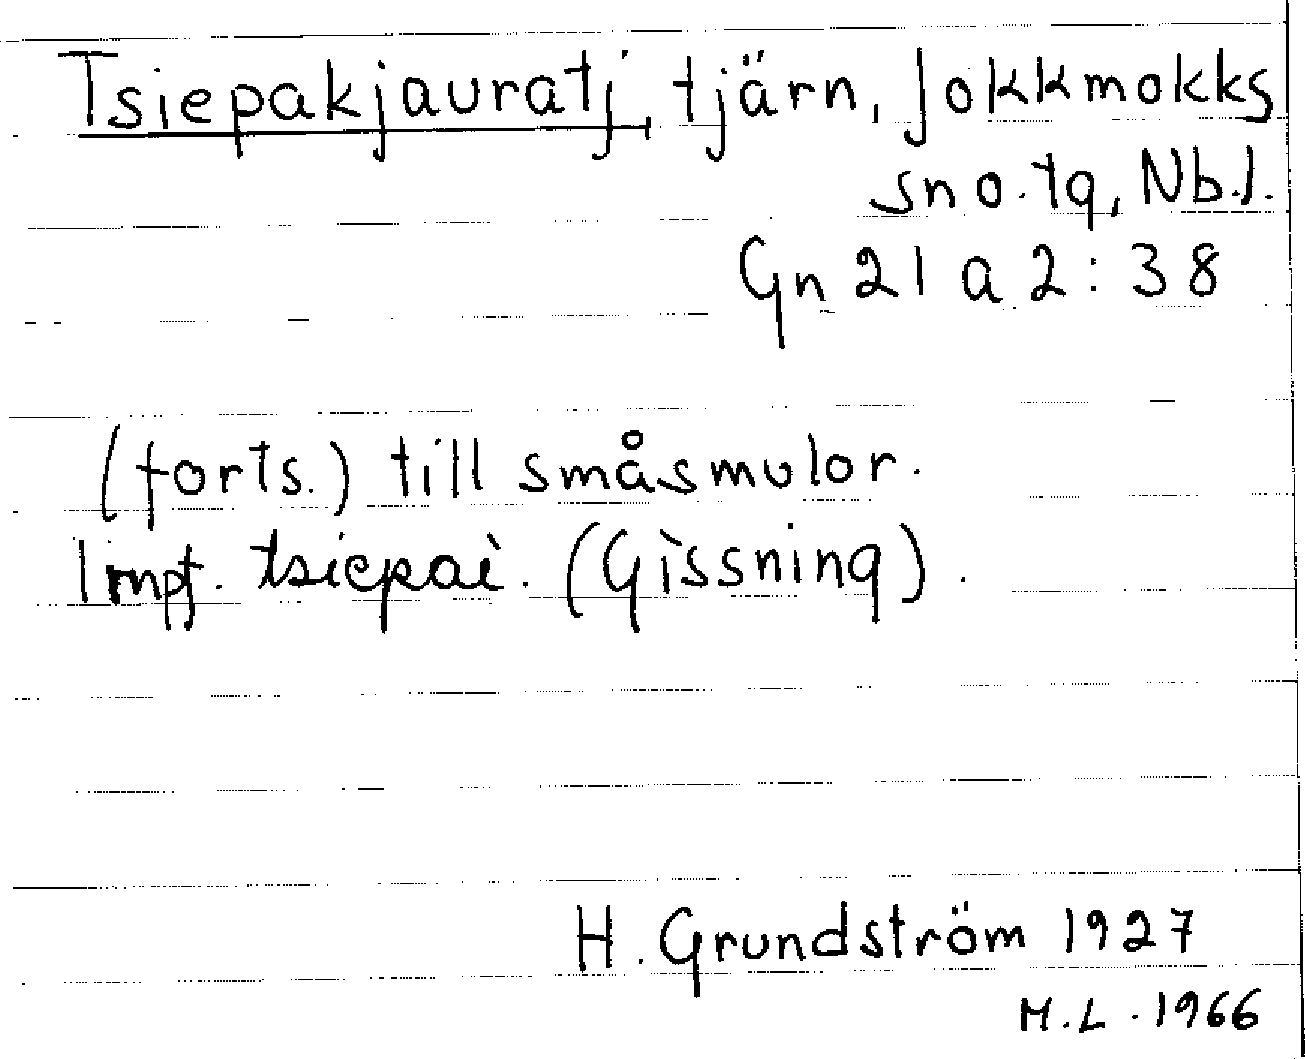 Tsiepakjauratj, tjärn, Jokkmokks
sn o. tg, Nb.l.
Gn 21 a 2:38
(forts.) till småsmulor.
Impf. tsiepai. (Gissning).
H. Grundström 1927
M.L. 1966